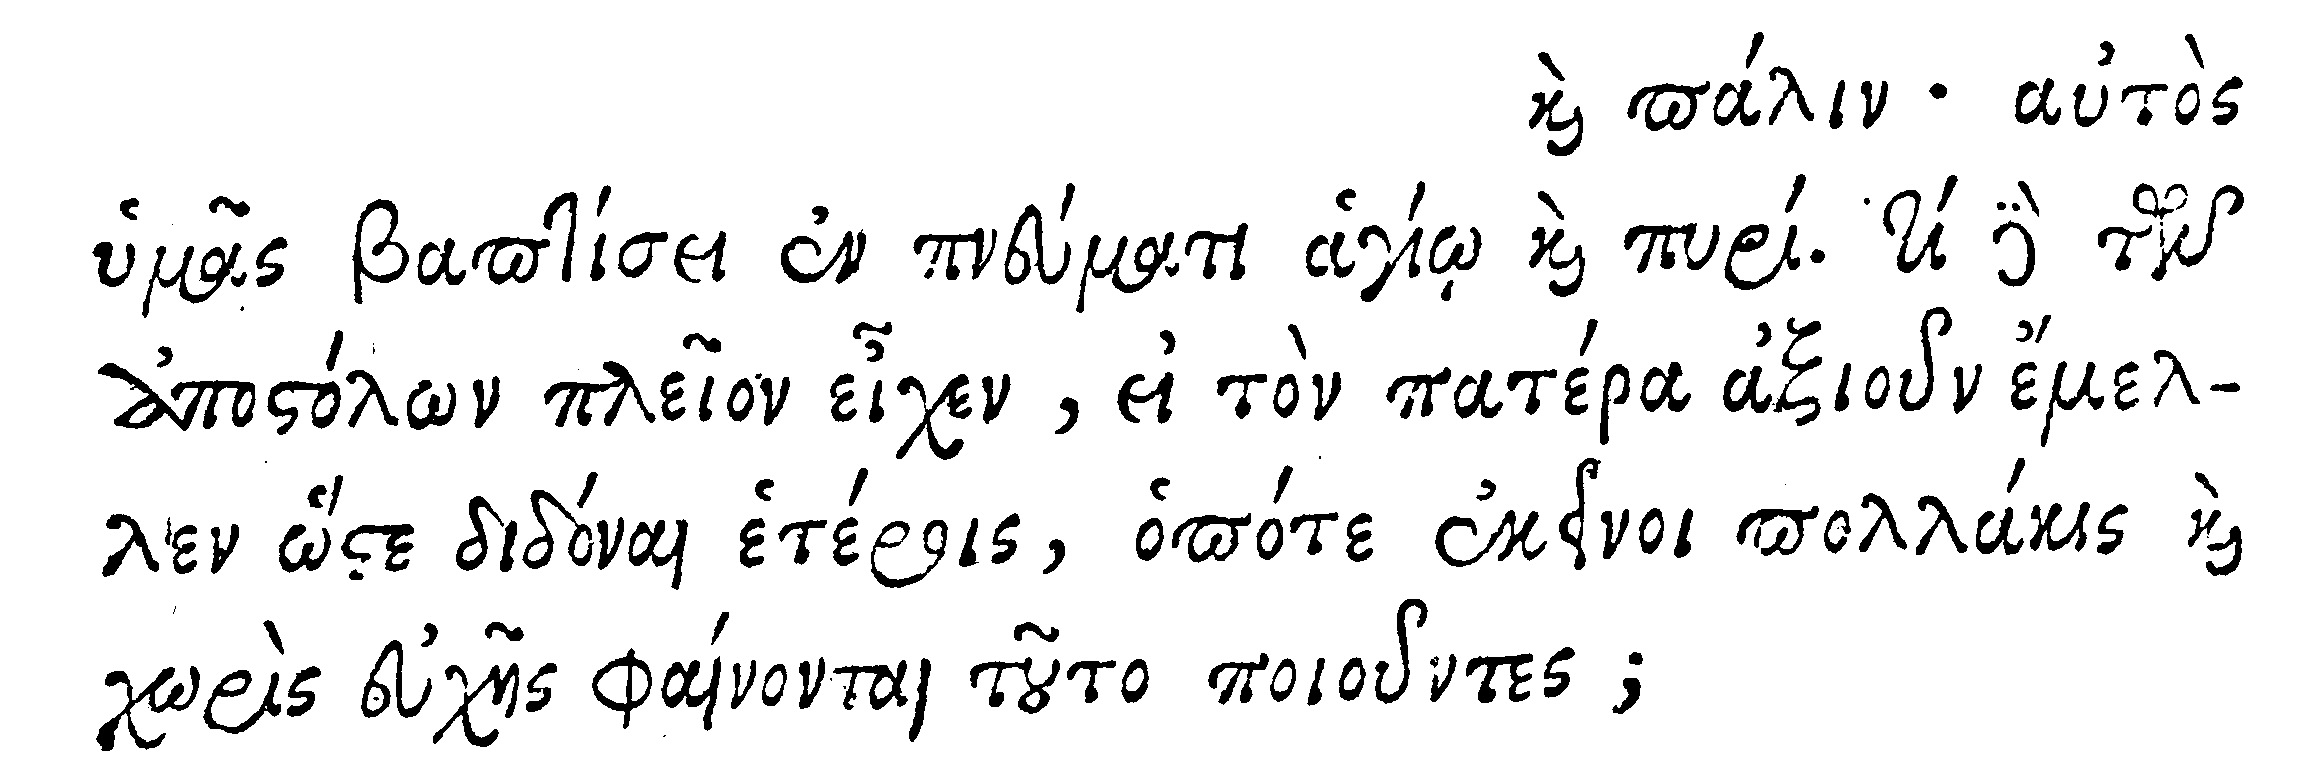 καὶ πάλιν · αὐτὸς
ὑμᾶς βαπτίσει ἐν πνεύματι ἁγίῳ καὶ πυρί. τί γὰρ τῶν
ἀποστόλων πλεῖον εἶχεν, εἰ τὸν πατέρα ἀξιοῦν ἔμελ-
λεν ὥστε διδόναι ἑτέροις, ὁπότε ἐκεῖνοι πολλάκις καὶ
χωρὶς εὐχῆς φαίνονται τοῦτο ποιοῦντες ;